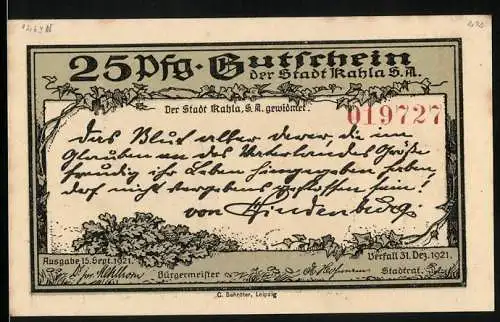 25 Pfg. Gutschein
der Stadt Kahla S.A.
Der Stadt Kahla, S.A. gewidmet:
019727
Das Blut aller derer, die im
Glauben an des Vaterlandes Größe
freudig ihr Leben hingegeben haben,
darf nicht vergebens geflossen sein!
von Hindenburg.
Ausgabe 15. Sept. 1921.
Verfall 31. Dez. 1921.
Bürgermeister
Stadtrat.
C. Schröter, Leipzig